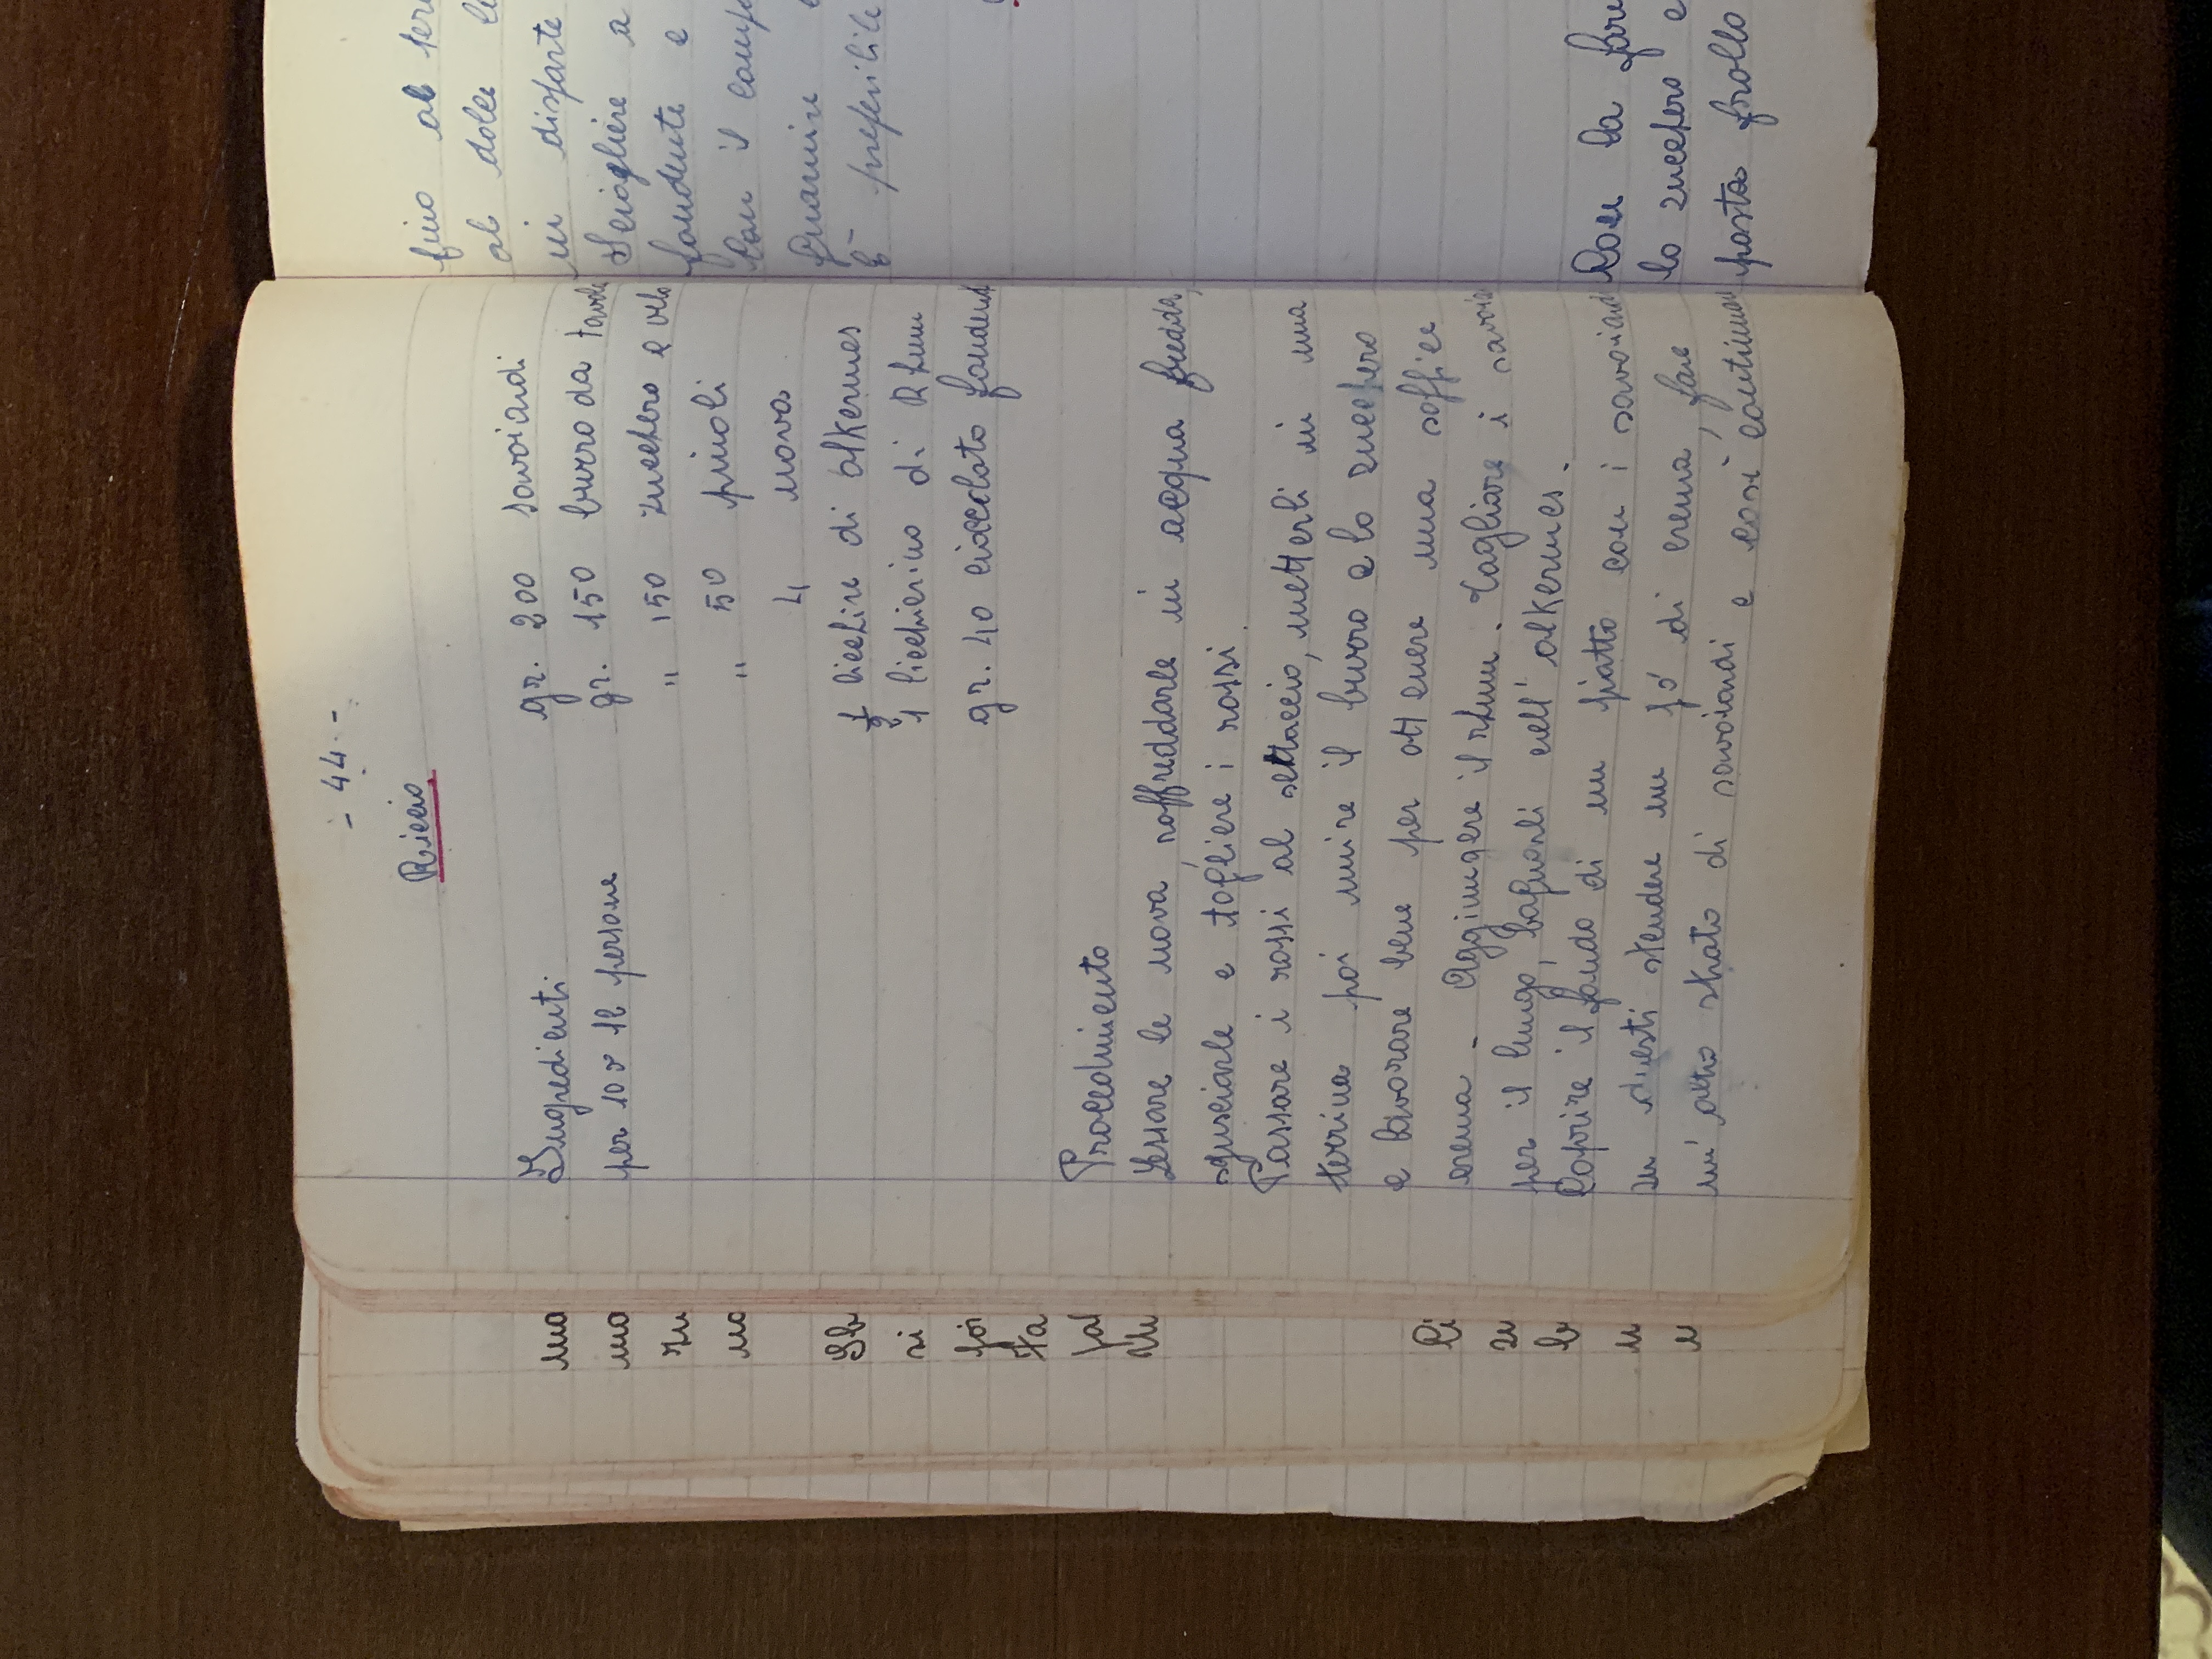 - 44 -
Riccio
Ingredienti
per 10 o 12 persone
gr. 200 savoiardi
gr. 150 burro da tavola
" 150 zucchero a velo
" 50 pinoli
4 uova
1/2 bicchire di alkermes
1 bicchierino di Rhum
gr. 40 cioccolato fondent
Procedimento
Lessare le uova, raffreddarle in acqua fredda,
sgusciarle e togliere i rossi.
Passare i rossi al settaccio, metterli in una
terrina poi unire il burro e lo zucchero
e lavorare bene per ottenere una soffice
crema - Aggiungere il rhum. Tagliare i savoia
per il lungo, bagnarli nell' alkermes.
Coprire il fondo di un piatto con i savoiardi
su questi stendere un pó di crema, fare
un' altro strato di savoiardi e così continuare
fino al ter
al dolce le
in disparte
Sciogliere a
fondente e
Con il comp
Guarnire
È preferibile
Con la fari
lo zucchero e
pasta frolla
ma
ma
zu
no
Sb
si
for
Ta
fal
Ci
zu
b